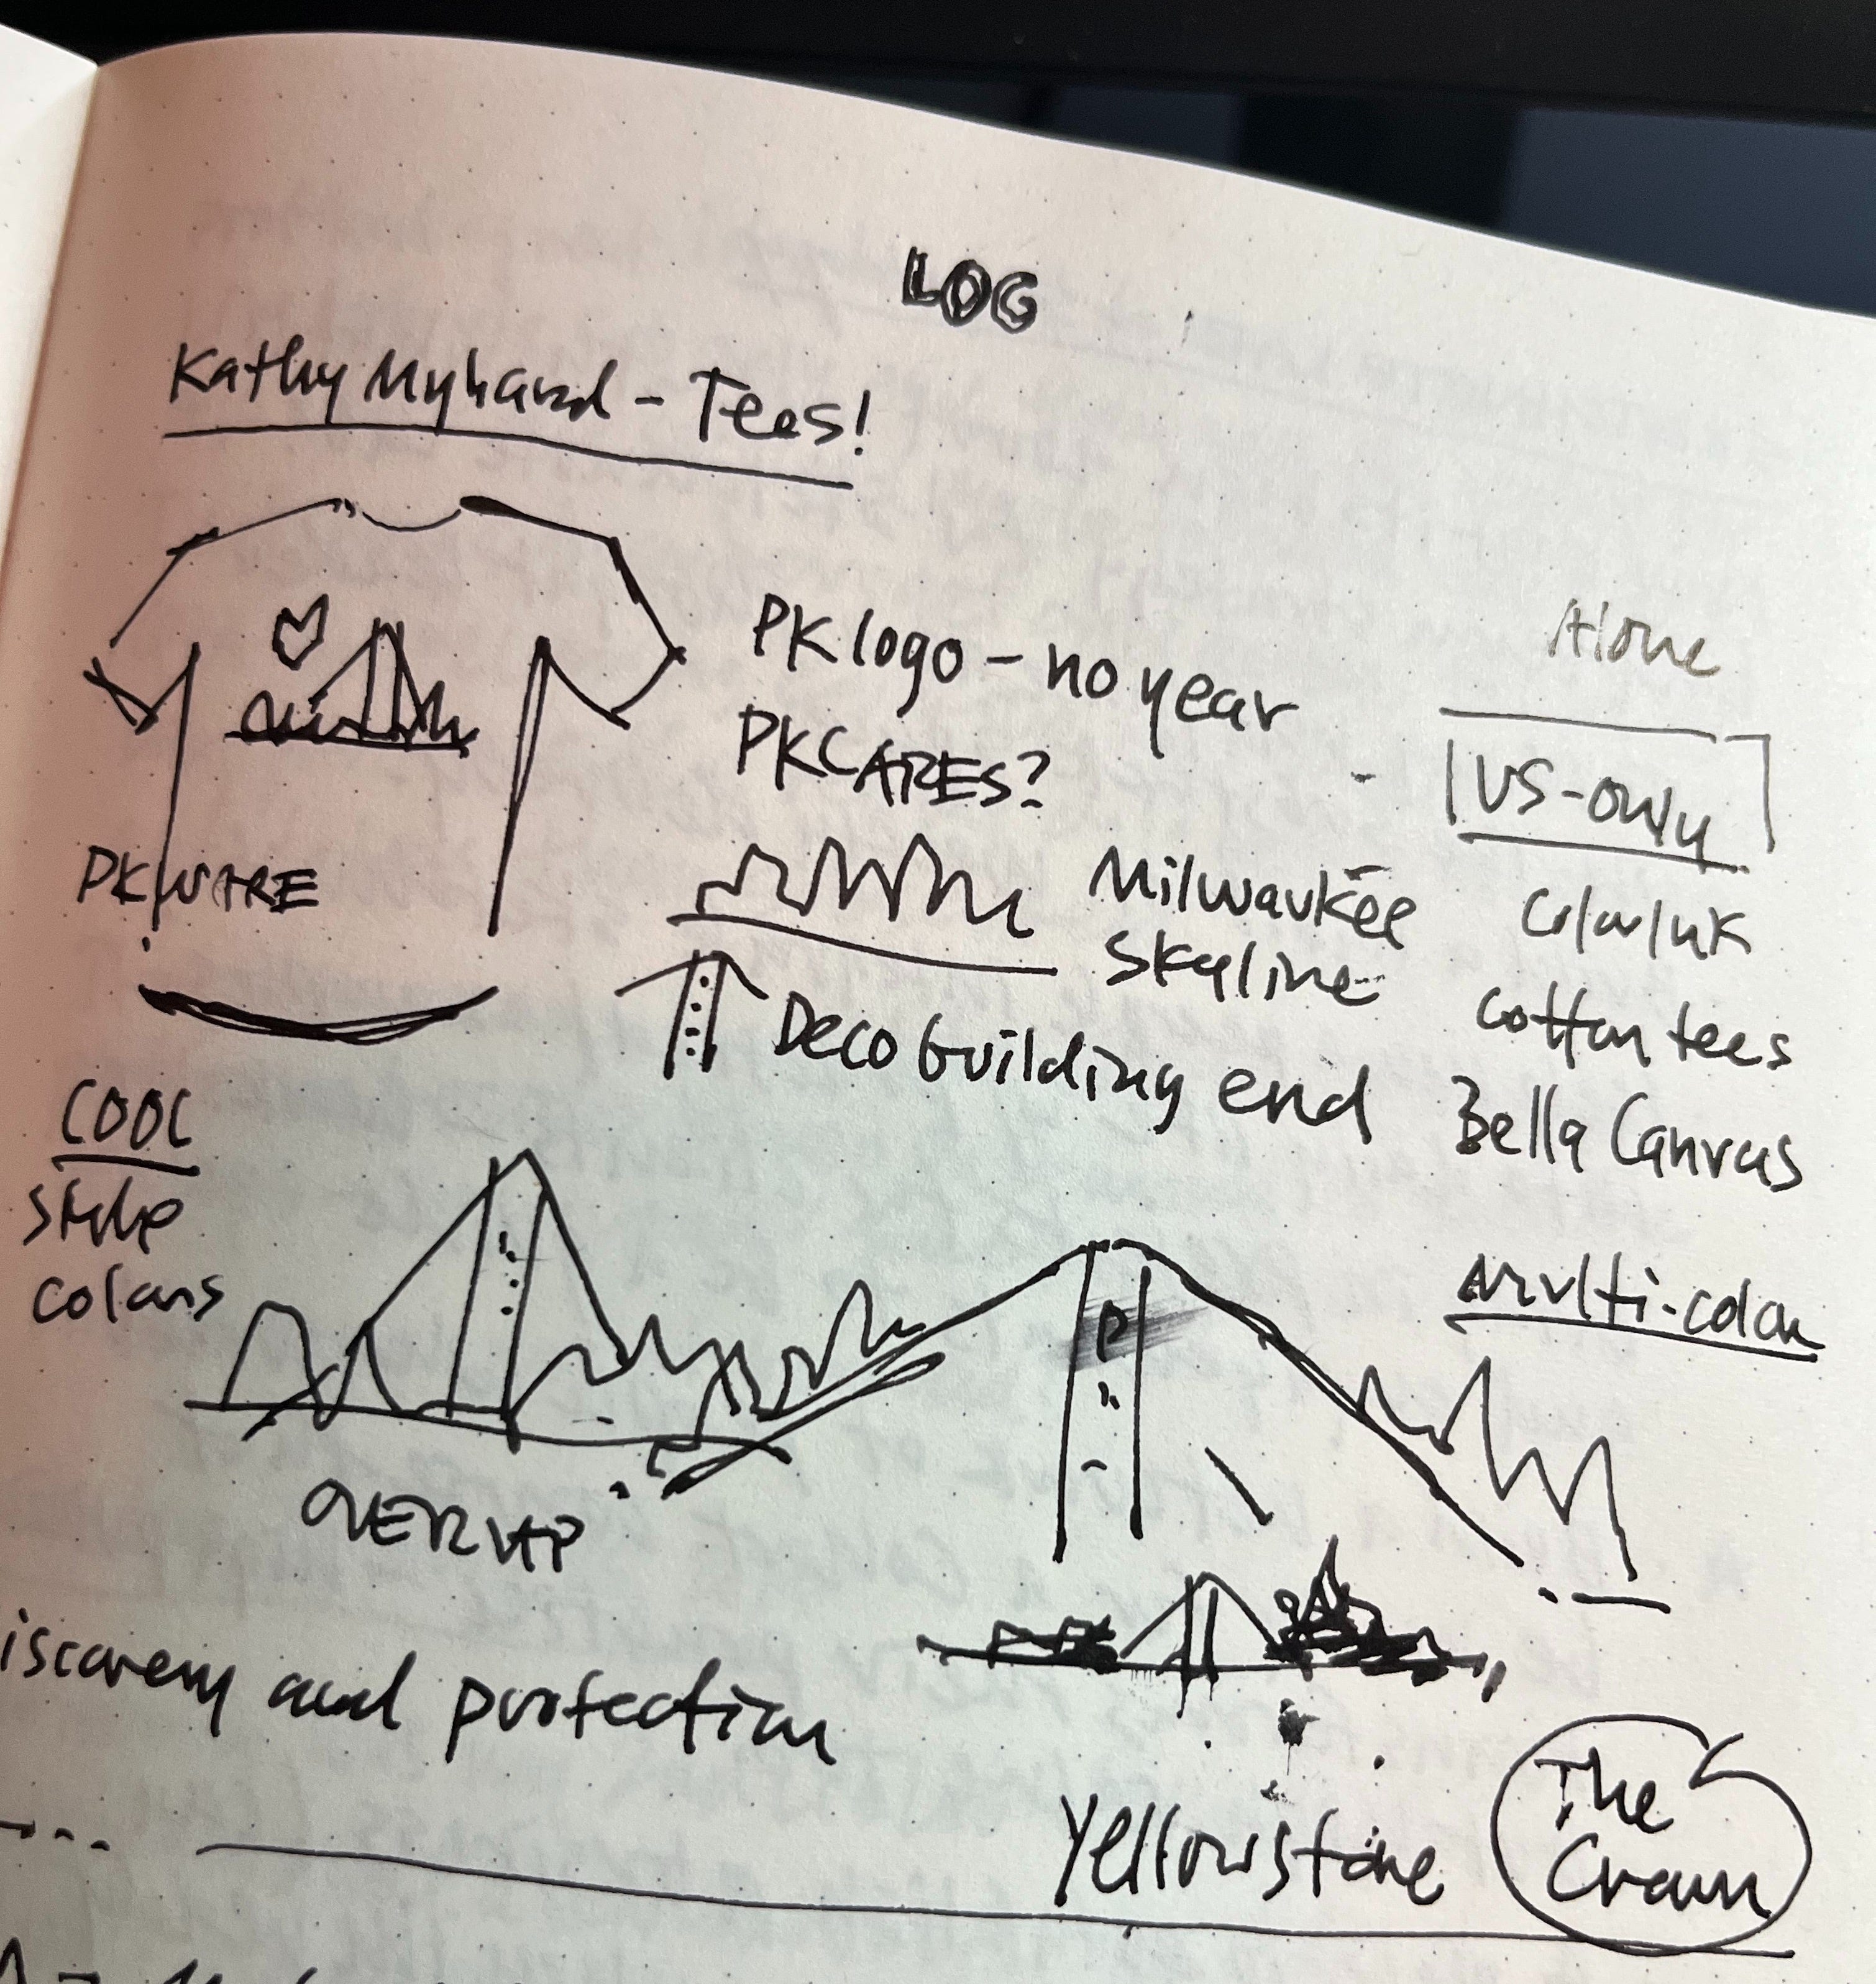 LOG
Kathy Myhard - Tees!
PK logo - no year
PKCARES?
Alone
US-only
PKWARE
Milwaukee
Skyline
Deco building end
Colorluk
Cotton tees
Bella Canvas
COOL
Style
Colors
Multi-color
OVERLAP
iscovery and protection
Yellowstone
The
Crown